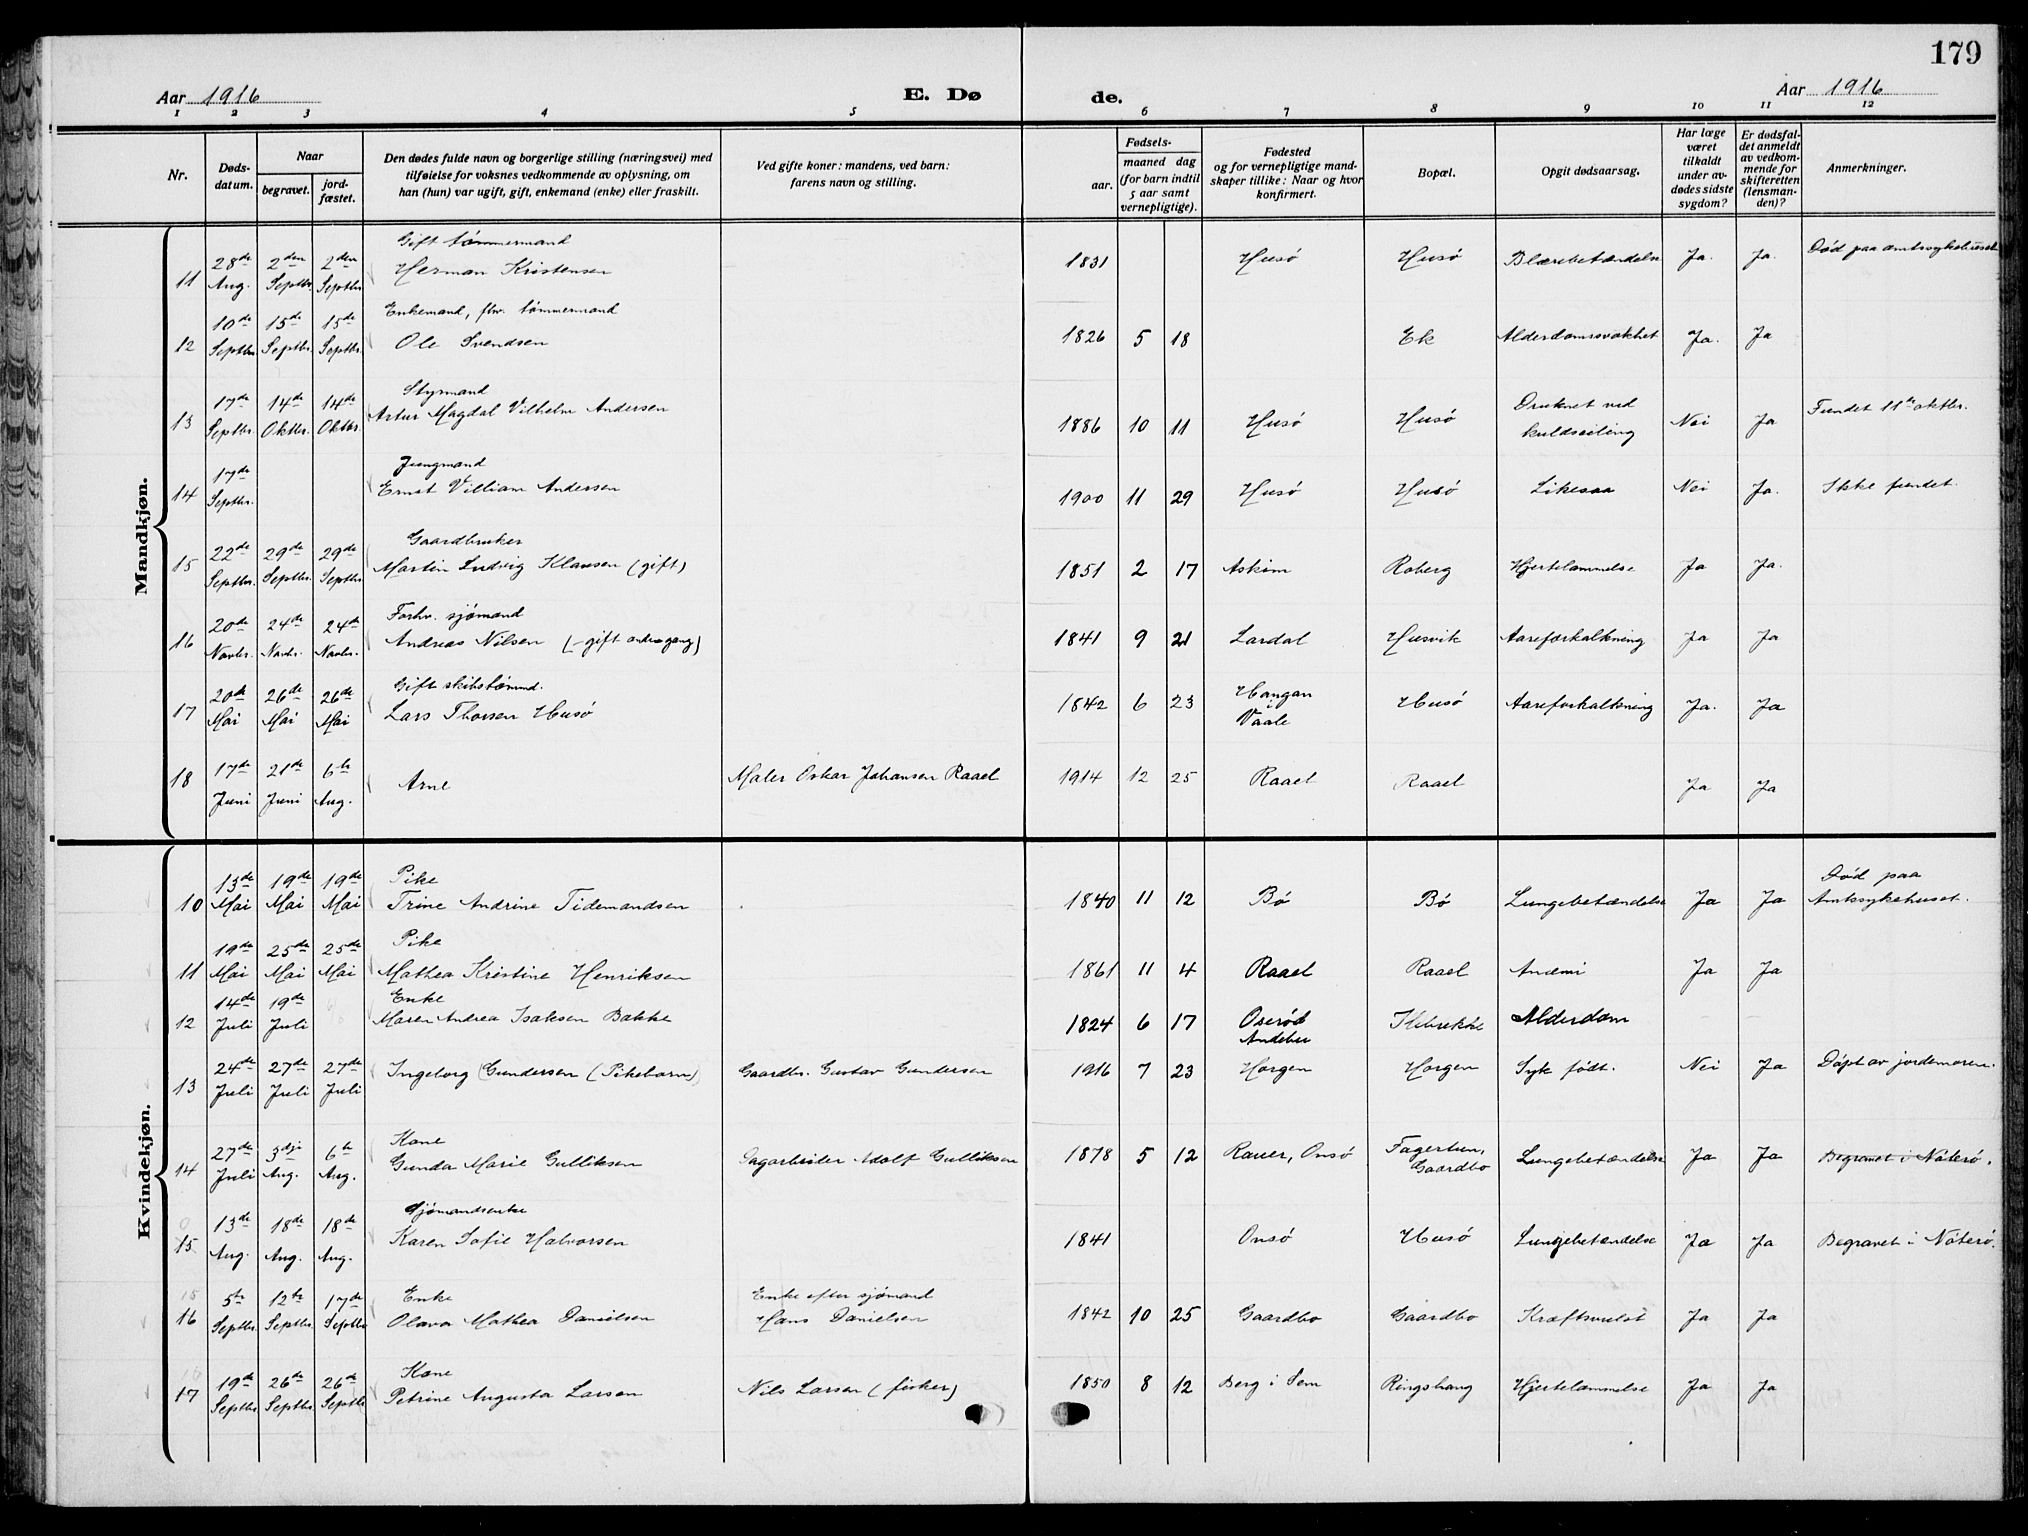 179
Aar 1916 E. Dø de. Aar 1916
1 2 3 4 5 6 7 8 9 10 11 12
Nr.
Døds-
datum.
Naar
begravet.
jord-
fæstet.
Den dødes fulde navn og borgerlige stilling (næringsvei) med
tilføielse for voksnes vedkommende av oplysning, om
han (hun) var ugift, gift, enkemand (enke) eller fraskilt.
Ved gifte koner: mandens, ved barn:
farens navn og stilling.
Fødsels-
aar.
maaned dag
(for barn indtil
5 aar samt
vernepligtige).
Fødested
og for vernepligtige mand-
skaper tillike: Naar og hvor
konfirmert.
Bopæl.
Opgit dødsaarsag.
Har læge
været
tilkaldt
under av-
dødes sidste
sygdom?
Er dødsfal-
det anmeldt
av vedkom-
mende for
skifteretten
(lensman-
den)?
Anmerkninger.
Mandkjøn.
Gift tømmermand
11 28de Aug. 2den Septbr. 2den Septbr. Herman Kristensen 1831 Husö Husö Blærebetændelse Ja. Ja. Död paa amtssykehuset
Enkemand, fhv. tømmermand
12 10de Septbr. 15de Septbr. 15de Septbr. Ole Svendsen 1826 5 18 Ek Alderdomssvakhet Ja. Ja
Styrmand
13 17de Septbr. 14de Oktbr. 14de Oktbr. Artur Magdal Vilhelm Andersen 1886 10 11 Husö Husö Druknet ved kuldseiling Nei Ja Fundet 11te oktbr.
Jungmand
14 17de Septbr. Ernst Villiam Andersen 1900 11 29 Husö Husö Likesaa Nei Ja. Ikke fundet.
Gaardbruker
15 22de Septbr. 29de Septbr. 29de Septbr. Martin Ludvig Klausen (gift) 1851 2 17 Askim Roberg Hjertelammelse Ja Ja.
Forhv. sjömand
16 20de Novbr. 24de Novbr. 24de Novbr. Andreas Nilsen (- gift andre gang) 1841 9 21 Lardal Husvik Aareforkalkning Ja Ja
Gift skibstømmd.
17 20de Mai 26de Mai 26de Mai Lars Thorsen Husö 1842 6 23 Hangan i Vaale Husö Aareforkalkning Ja. Ja
18 17de Juni 21de Juni 6te Aug. Arne Maler Oskar Johansen Raael 1914 12 25 Raael Raael Ja Ja
Kvindekjøn.
Pike
10 13de Mai 19de Mai 19de Mai Trine Andrine Tidemandsen 1840 11 12 Bö Bö Lungebetændelse Ja Ja Död paa Amtssykehuset.
Pike
11 19de Mai 25de Mai 25de Mai Mathea Kristine Henriksen 1861 11 4 Raael Raael Anæmi Ja Ja
Enke
12 14de Juli 19de Juli Maren Andrea Isaksen Bakke 1824 6 17 Oseröd Andebu Alderdom
13 24de Juli 27de Juli 27de Juli Ingeborg Gundersen (Pikebarn) Gaardbr. Gustav Gundersen 1916 7 23 Horgen Horgen Syk födt. Nei Ja Döpt av jordemoren.
Kone
14 27de Juli 3dje Aug. 6te Aug. Gunda Marie Gulliksen Sagarbeider Adolf Gulliksen 1878 5 12 Rauer, Onsö Fagertun, Gaardbo Lungebetændelse Ja Ja Begravet i Nöterö.
Sjömandsenke
15 13de Aug. 18de Aug. 18de Aug. Karen Sofie Halvorsen 1841 Onsö Husö Lungebetændelse Ja Ja Begravet i Nöterö.
Enke Enke efter sjömand
16 5te Septbr. 12te Septbr. 17de Septbr. Olava Mathea Danielsen Hans Danielsen 1842 10 25 Gaardbo Gaardbo Kræftsvulst Ja Ja
Kone
17 19de Septbr. 26de Septbr. 26de Septbr. Petrine Augusta Larsen Nils Larsen (fisker) 1850 8 12 Berg i Sem Ringshaug Hjertelammelse Ja Ja